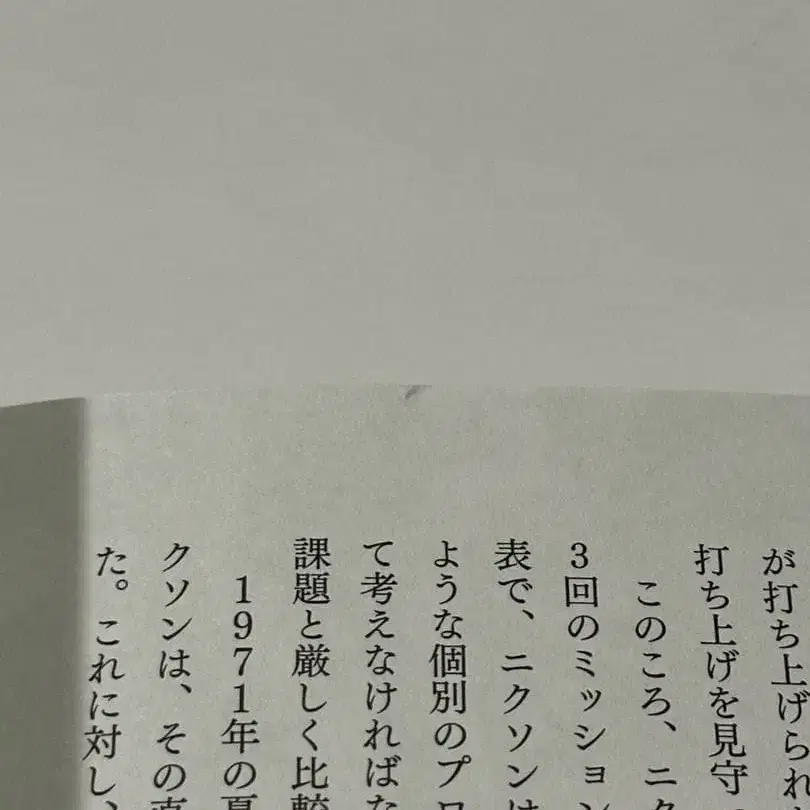 が打ち上げられ
打ち上げを見守
このころ、ニク
3回のミッション
表で、ニクソンは
ような個別のプロ
て考えなければな
課題と厳しく比較
1971年の夏
クソンは、その
た。これに対し、